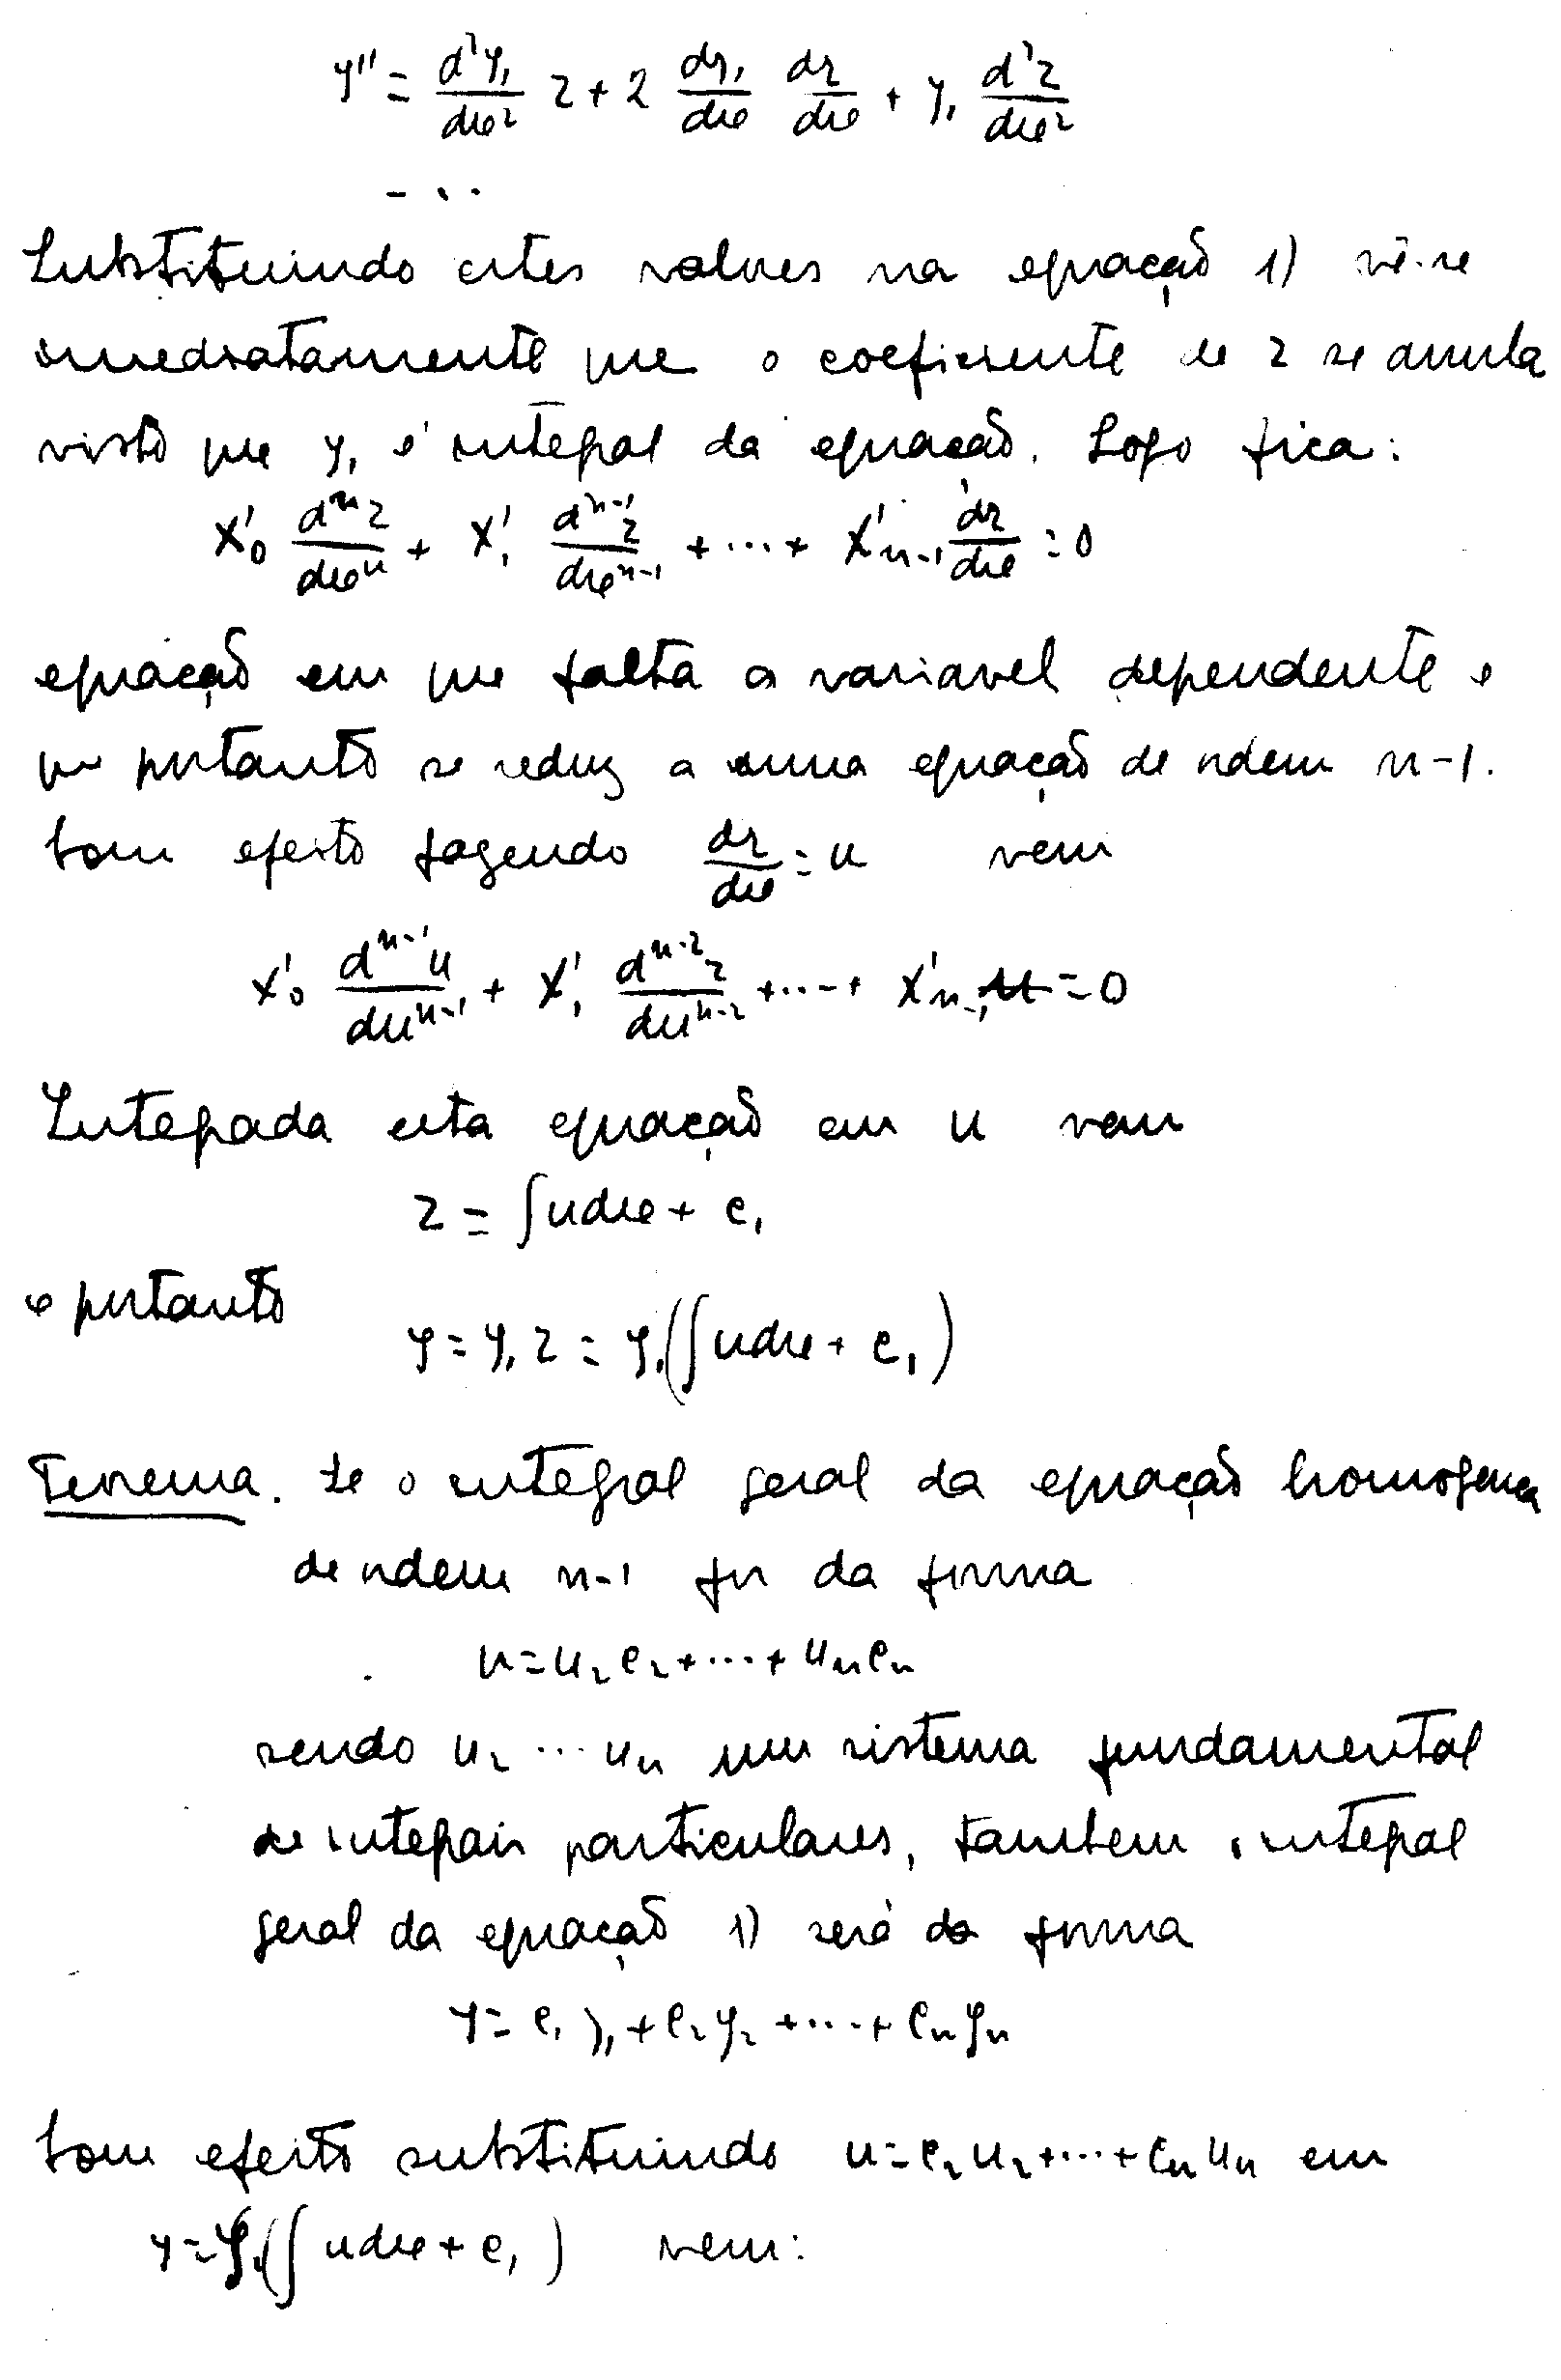 y'' = d²y₁/dx² z + 2 dy₁/dx dz/dx + y₁ d²z/dx²
- ...
Substituindo estes valores na equação 1) vê-se
imediatamente que o coeficiente de z se anula
visto que y₁ é integral da equação. Logo fica:
X'₀ dⁿz/dxⁿ + X'₁ dⁿ⁻¹z/dxⁿ⁻¹ + ... + X'ₙ₋₁ dz/dx = 0
equação em que falta a variavel dependente e
que portanto se reduz a uma equação de ordem n-1.
Com efeito fazendo dz/dx = u vem
X'₀ dⁿ⁻¹u/duⁿ⁻¹ + X'₁ dⁿ⁻²z/duⁿ⁻² + ... + X'ₙ₋₁ u = 0
Integrada esta equação em u vem
z = ∫udx + c₁
e portanto
y = y₁ z = y₁(∫udx + c₁)
Teorema. Se o integral geral da equação homogenea
de ordem n-1 for da forma
u = u₂c₂ + ... + uₙcₙ
sendo u₂ ... uₙ um sistema fundamental
de integrais particulares, tambem o integral
geral da equação 1) será da forma
y = c₁y₁ + c₂y₂ + ... + cₙyₙ
Com efeito substituindo u = c₂u₂ + ... + cₙuₙ em
y = y₁(∫udx + c₁) vem: